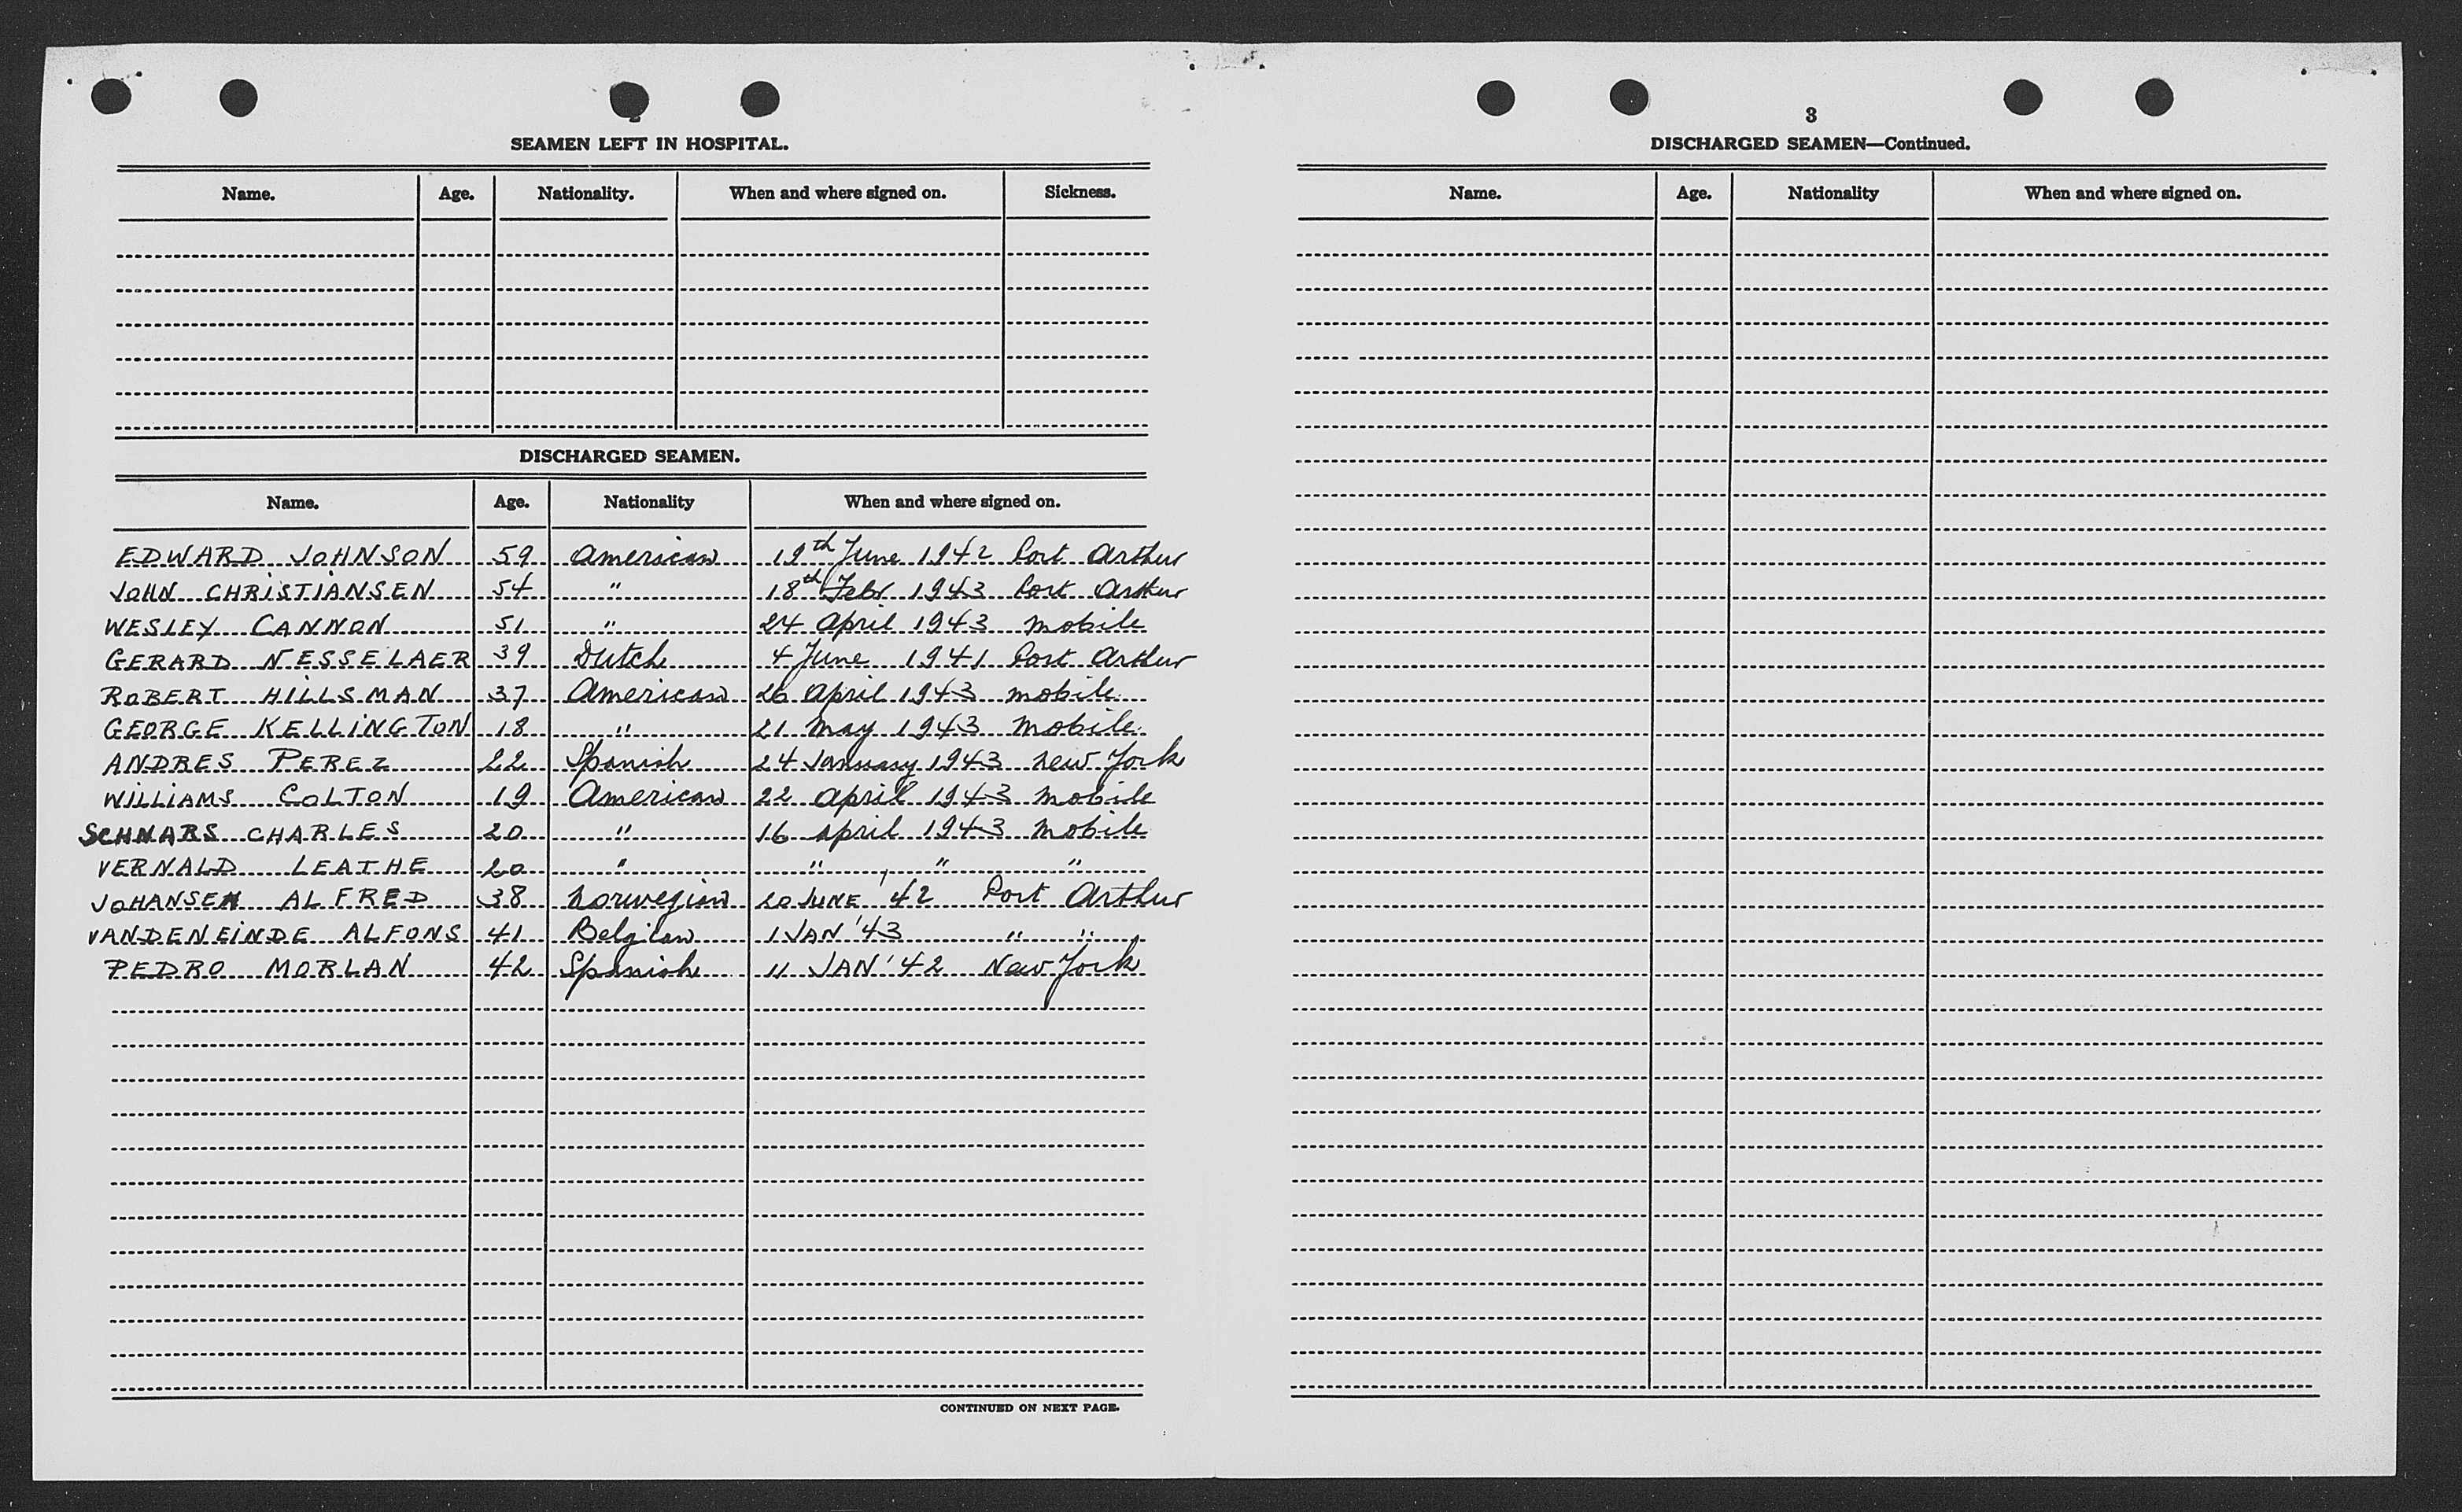 SEAMEN LEFT IN HOSPITAL.
Name. Age. Nationality. When and where signed on. Sickness.
DISCHARGED SEAMEN.
Name. Age. Nationality When and where signed on.
EDWARD JOHNSON 59 American 19th June 1942 Port Arthur
JOHN CHRISTIANSEN 54 " 18th Febr 1943 Port Arthur
WESLEY CANNON 51 " 24 April 1943 Mobile
GERARD NESSELAER 39 Dutch 4 June 1941 Port Arthur
ROBERT HILLSMAN 37 American 26 April 1943 Mobile
GEORGE KELLINGTON 18 " 21 May 1943 Mobile.
ANDRES PEREZ 22 Spanish 24 January 1943 New York
WILLIAMS COLTON 19 American 22 April 1943 Mobile
SCHNARS CHARLES 20 " 16 April 1943 Mobile
VERNALD LEATHE 20 " " " "
JOHANSEN ALFRED 38 Norwegian 20 JUNE '42 Port Arthur
VANDENEINDE ALFONS 41 Belgian 1 JAN '43 " "
PEDRO MORLAN 42 Spanish 11 JAN '42 New York
CONTINUED ON NEXT PAGE.
3
DISCHARGED SEAMEN—Continued.
Name. Age. Nationality When and where signed on.